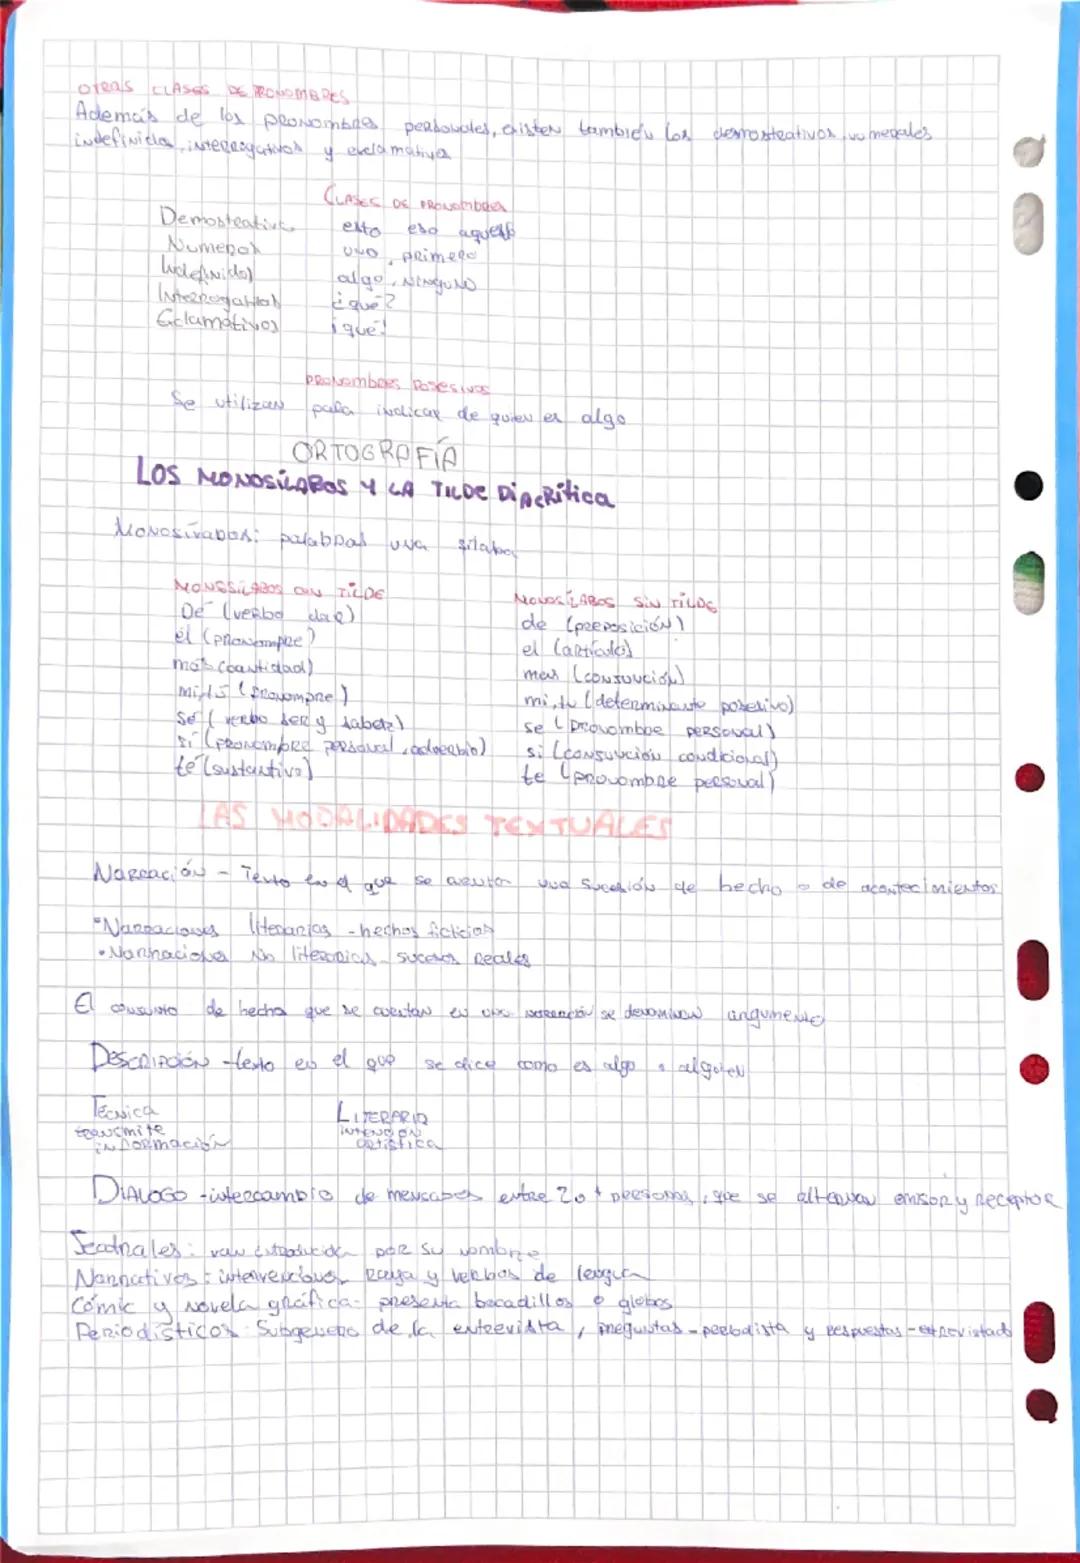 OTRAS CLASES DE PRONOMBRES
Además de los pronombres personales, existen también los demostrativos, numerales
indefinidos, interrogativos y exclamativos
CLASES DE PRONOMBRES
Demostrativos esto eso aquello
Numeros uno, primero
Indefinidos algo, ninguno
Interrogativos ¿qué?
Exclamativos ¡qué!
PRONOMBRES POSESIVOS
Se utilizan para indicar de quien es algo
ORTOGRAFÍA
LOS MONOSÍLABOS Y LA TILDE DIACRÍTICA
Monosílabos: palabras una sílaba
MONOSÍLABOS CON TILDE MONOSÍLABOS SIN TILDE
Dé (verbo dar) de (preposición)
él (pronombre) el (artículo)
más (cantidad) mas (consunción)
mí, tú (pronombre) mi, tu (determinante posesivo)
Sé (verbo ser y saber) se (pronombre personal)
sí (pronombre personal, adverbio) si (consunción condicional)
té (sustantivo) te (pronombre personal)
LAS MODALIDADES TEXTUALES
Narración - Texto en el que se cuentan una sucesión de hecho o de acontecimientos
•Narraciones literarias - hechos ficticios
•Narraciones No literarias - sucesos reales
El consunto de hechos que se cuentan en una narración se denominan argumento
DESCRIPCIÓN - texto en el que se dice como es algo o alguien
Técnica LITERARIA
transmite INTENCION
información artística
DIALOGO - intercambio de mensajes entre 2 o + personas, que se alternan emisor y receptor
Teatrales: van introducidos por su nombre
Narrativos: intervenciones raya y verbos de lengua
Cómic y novela gráfica - presenta bocadillos o globos
Periodísticos: Subgenero de la entrevista, preguntas - periodista y respuestas - entrevistado